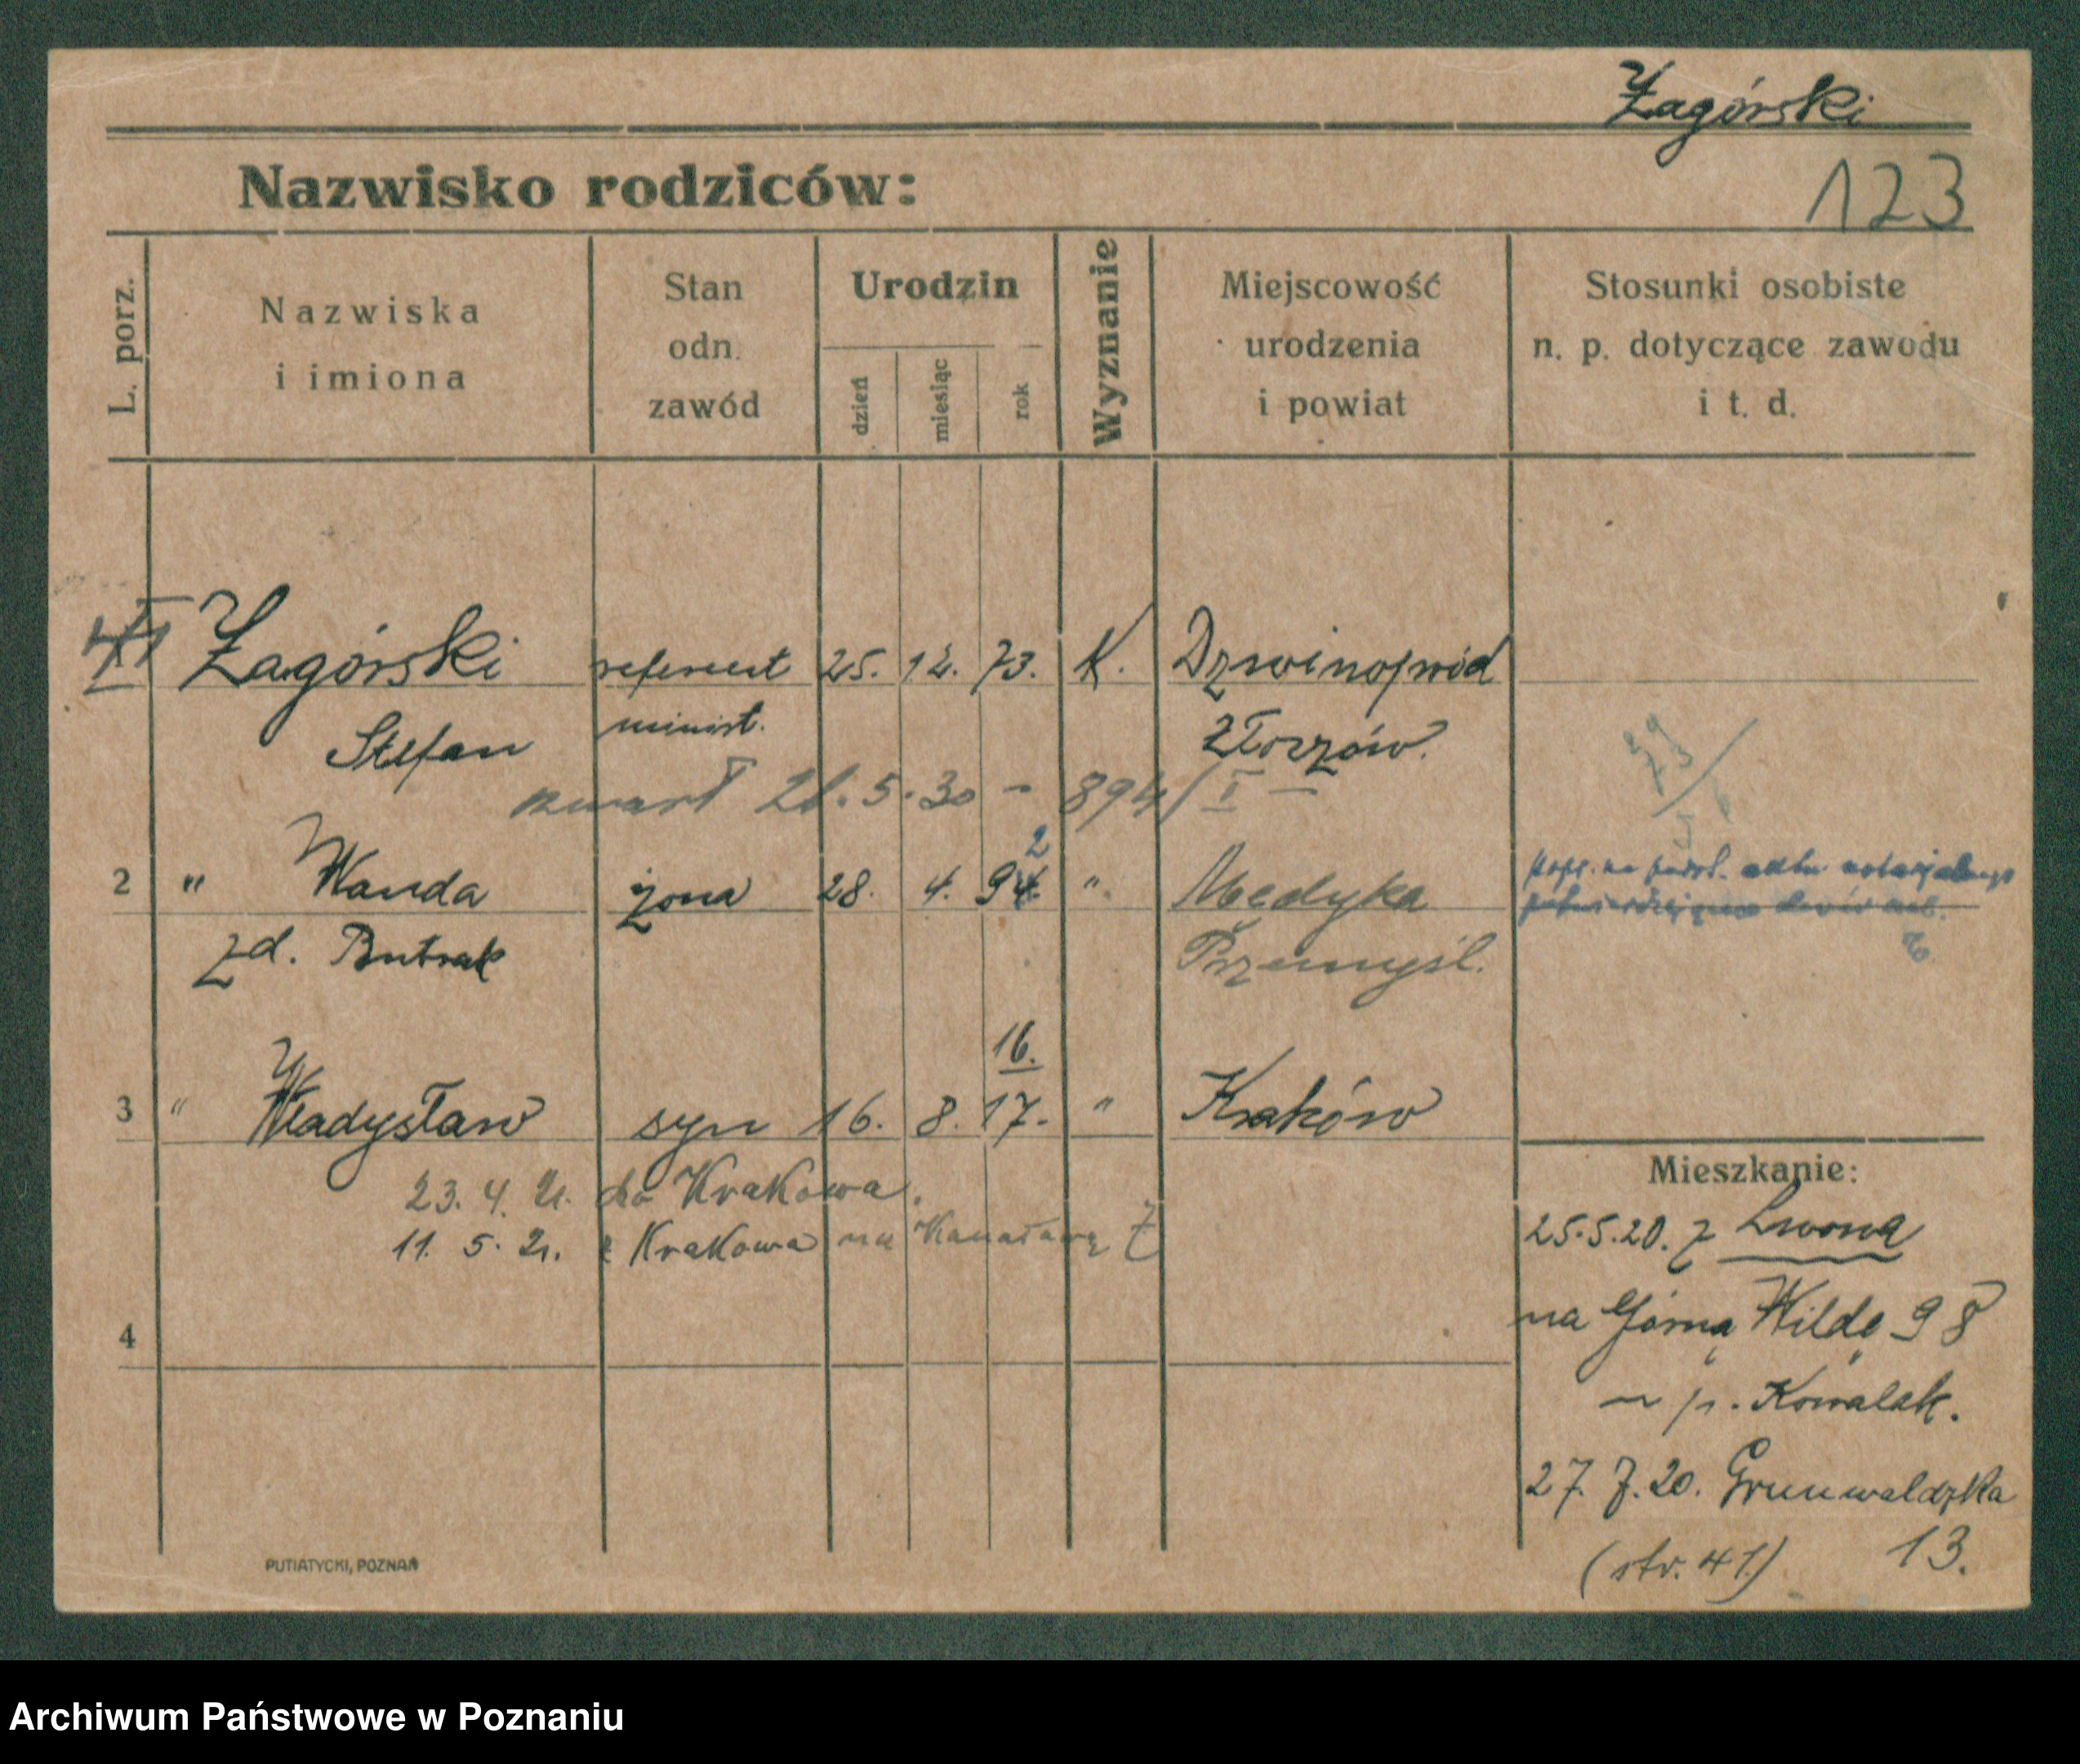 Zagórski
123
Nazwisko rodziców:
L. porz.
Nazwiska
i imiona
Stan
odn.
zawód
Urodzin
dzień
miesiąc
rok
Wyznanie
Miejscowość
urodzenia
i powiat
Stosunki osobiste
n. p. dotyczące zawodu
i t. d.
1 Zagórski referent 25. 12. 73. K. Dzwinogród
Stefan minist. Złoczów.
zmarł 21. 5. 30 - 894/I
2 " Wanda żona 28. 4. 94 2 " Medyka
zd. Butrak Przemyśl.
16.
3 " Władysław syn 16. 8. 17. " Kraków
23. 4. 21. do Krakowa.
11. 5. 21. z Krakowa na
4
Mieszkanie:
25.5.20. z Lwowa
na Górną Wildę 98
p. Kowalak.
27. 7. 20. Grunwaldzka
(str. 41) 13.
PUTIATYCKI, POZNAŃ
Archiwum Państwowe w Poznaniu